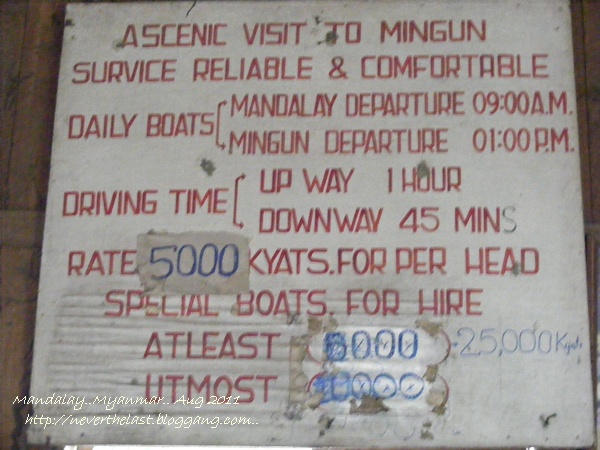 ASCENIC VISIT TO MINGUN
SURVICE RELIABLE & COMFORTABLE
DAILY BOATS
MANDALAY DEPARTURE 09:00 A.M.
MINGUN DEPARTURE 01:00 P.M.
DRIVING TIME
UP WAY 1 HOUR
DOWNWAY 45 MINS
RATE 5000 KYATS. FOR PER HEAD
SPECIAL BOATS. FOR HIRE
ATLEAST -25,000 Kyats
UTMOST
Mandalay..Myanmar.. Aug 2011
http://neverthelast.bloggang.com..